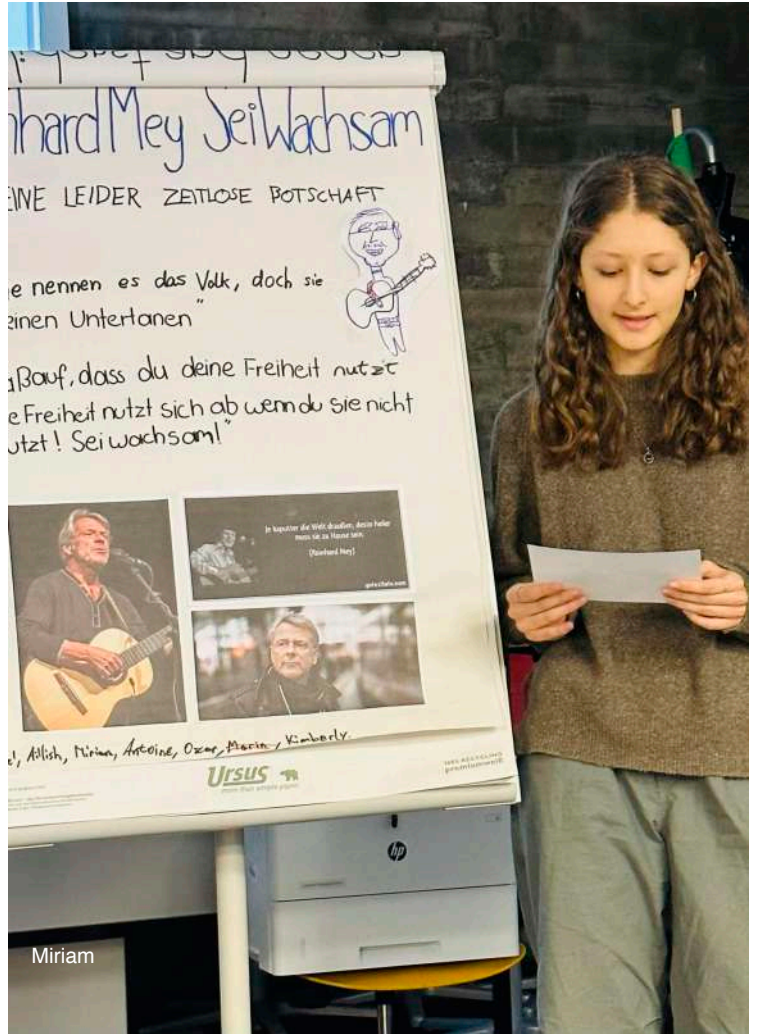 nhard Mey Sei Wachsam
EINE LEIDER ZEITLOSE BOTSCHAFT
e nennen es das Volk, doch sie
einen Untertanen"
ßauf, dass du deine Freiheit nutzt
e Freiheit nutzt sich ab wenn du sie nicht
utzt! Sei wachsam!"
Je kaputter die Welt draußen, desto heiler
muss sie zu Hause sein.
(Reinhard Mey)
gutezitate.com
Miriam, Antoine, Ozan, Marin, Kimberly.
Ursus
more than simple paper
100% RECYCLING
premiumweiß
hp
Miriam